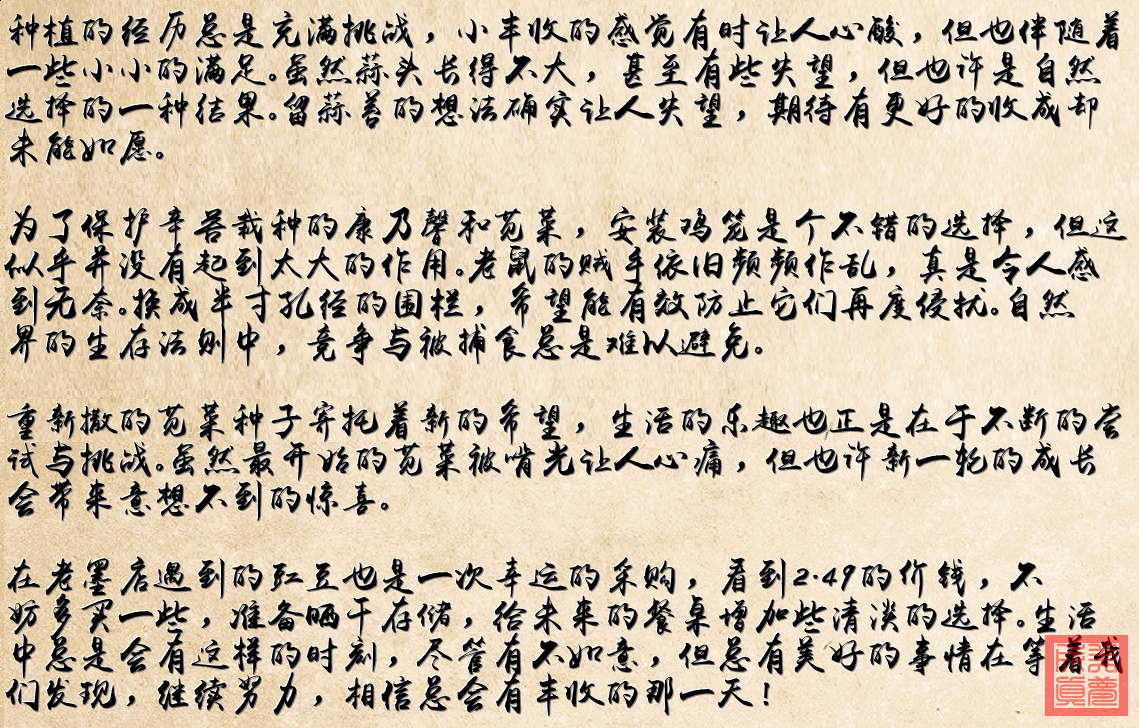 种植的经历总是充满挑战，小丰收的感觉有时让人心酸，但也伴随着
一些小小的满足。虽然蒜头长得不大，甚至有些失望，但也许是自然
选择的一种结果。留蒜苔的想法确实让人失望，期待有更好的收成却
未能如愿。
为了保护辛苦栽种的康乃馨和苋菜，安装鸡笼是个不错的选择，但这
似乎并没有起到太大的作用。老鼠的贼手依旧频频作乱，真是令人感
到无奈。换成半寸孔径的围栏，希望能有效防止它们再度侵扰。自然
界的生存法则中，竞争与被捕食总是难以避免。
重新撒的苋菜种子寄托着新的希望，生活的乐趣也正是在于不断的尝
试与挑战。虽然最开始的苋菜被啃光让人心痛，但也许新一轮的成长
会带来意想不到的惊喜。
在老墨店遇到的豇豆也是一次幸运的采购，看到2.49的价钱，不
妨多买一些，准备晒干存储，给未来的餐桌增加些清淡的选择。生活
中总是会有这样的时刻，尽管有不如意，但总有美好的事情在等着我
们发现，继续努力，相信总会有丰收的那一天！